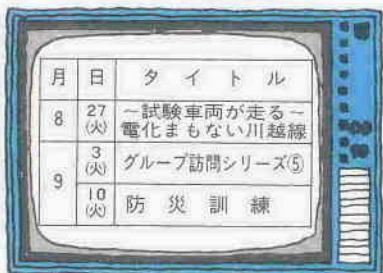 月 日 タイトル
8 27(火) ～試験車両が走る～
電化まもない川越線
9 3(火) グループ訪問シリーズ⑤
10(火) 防災訓練